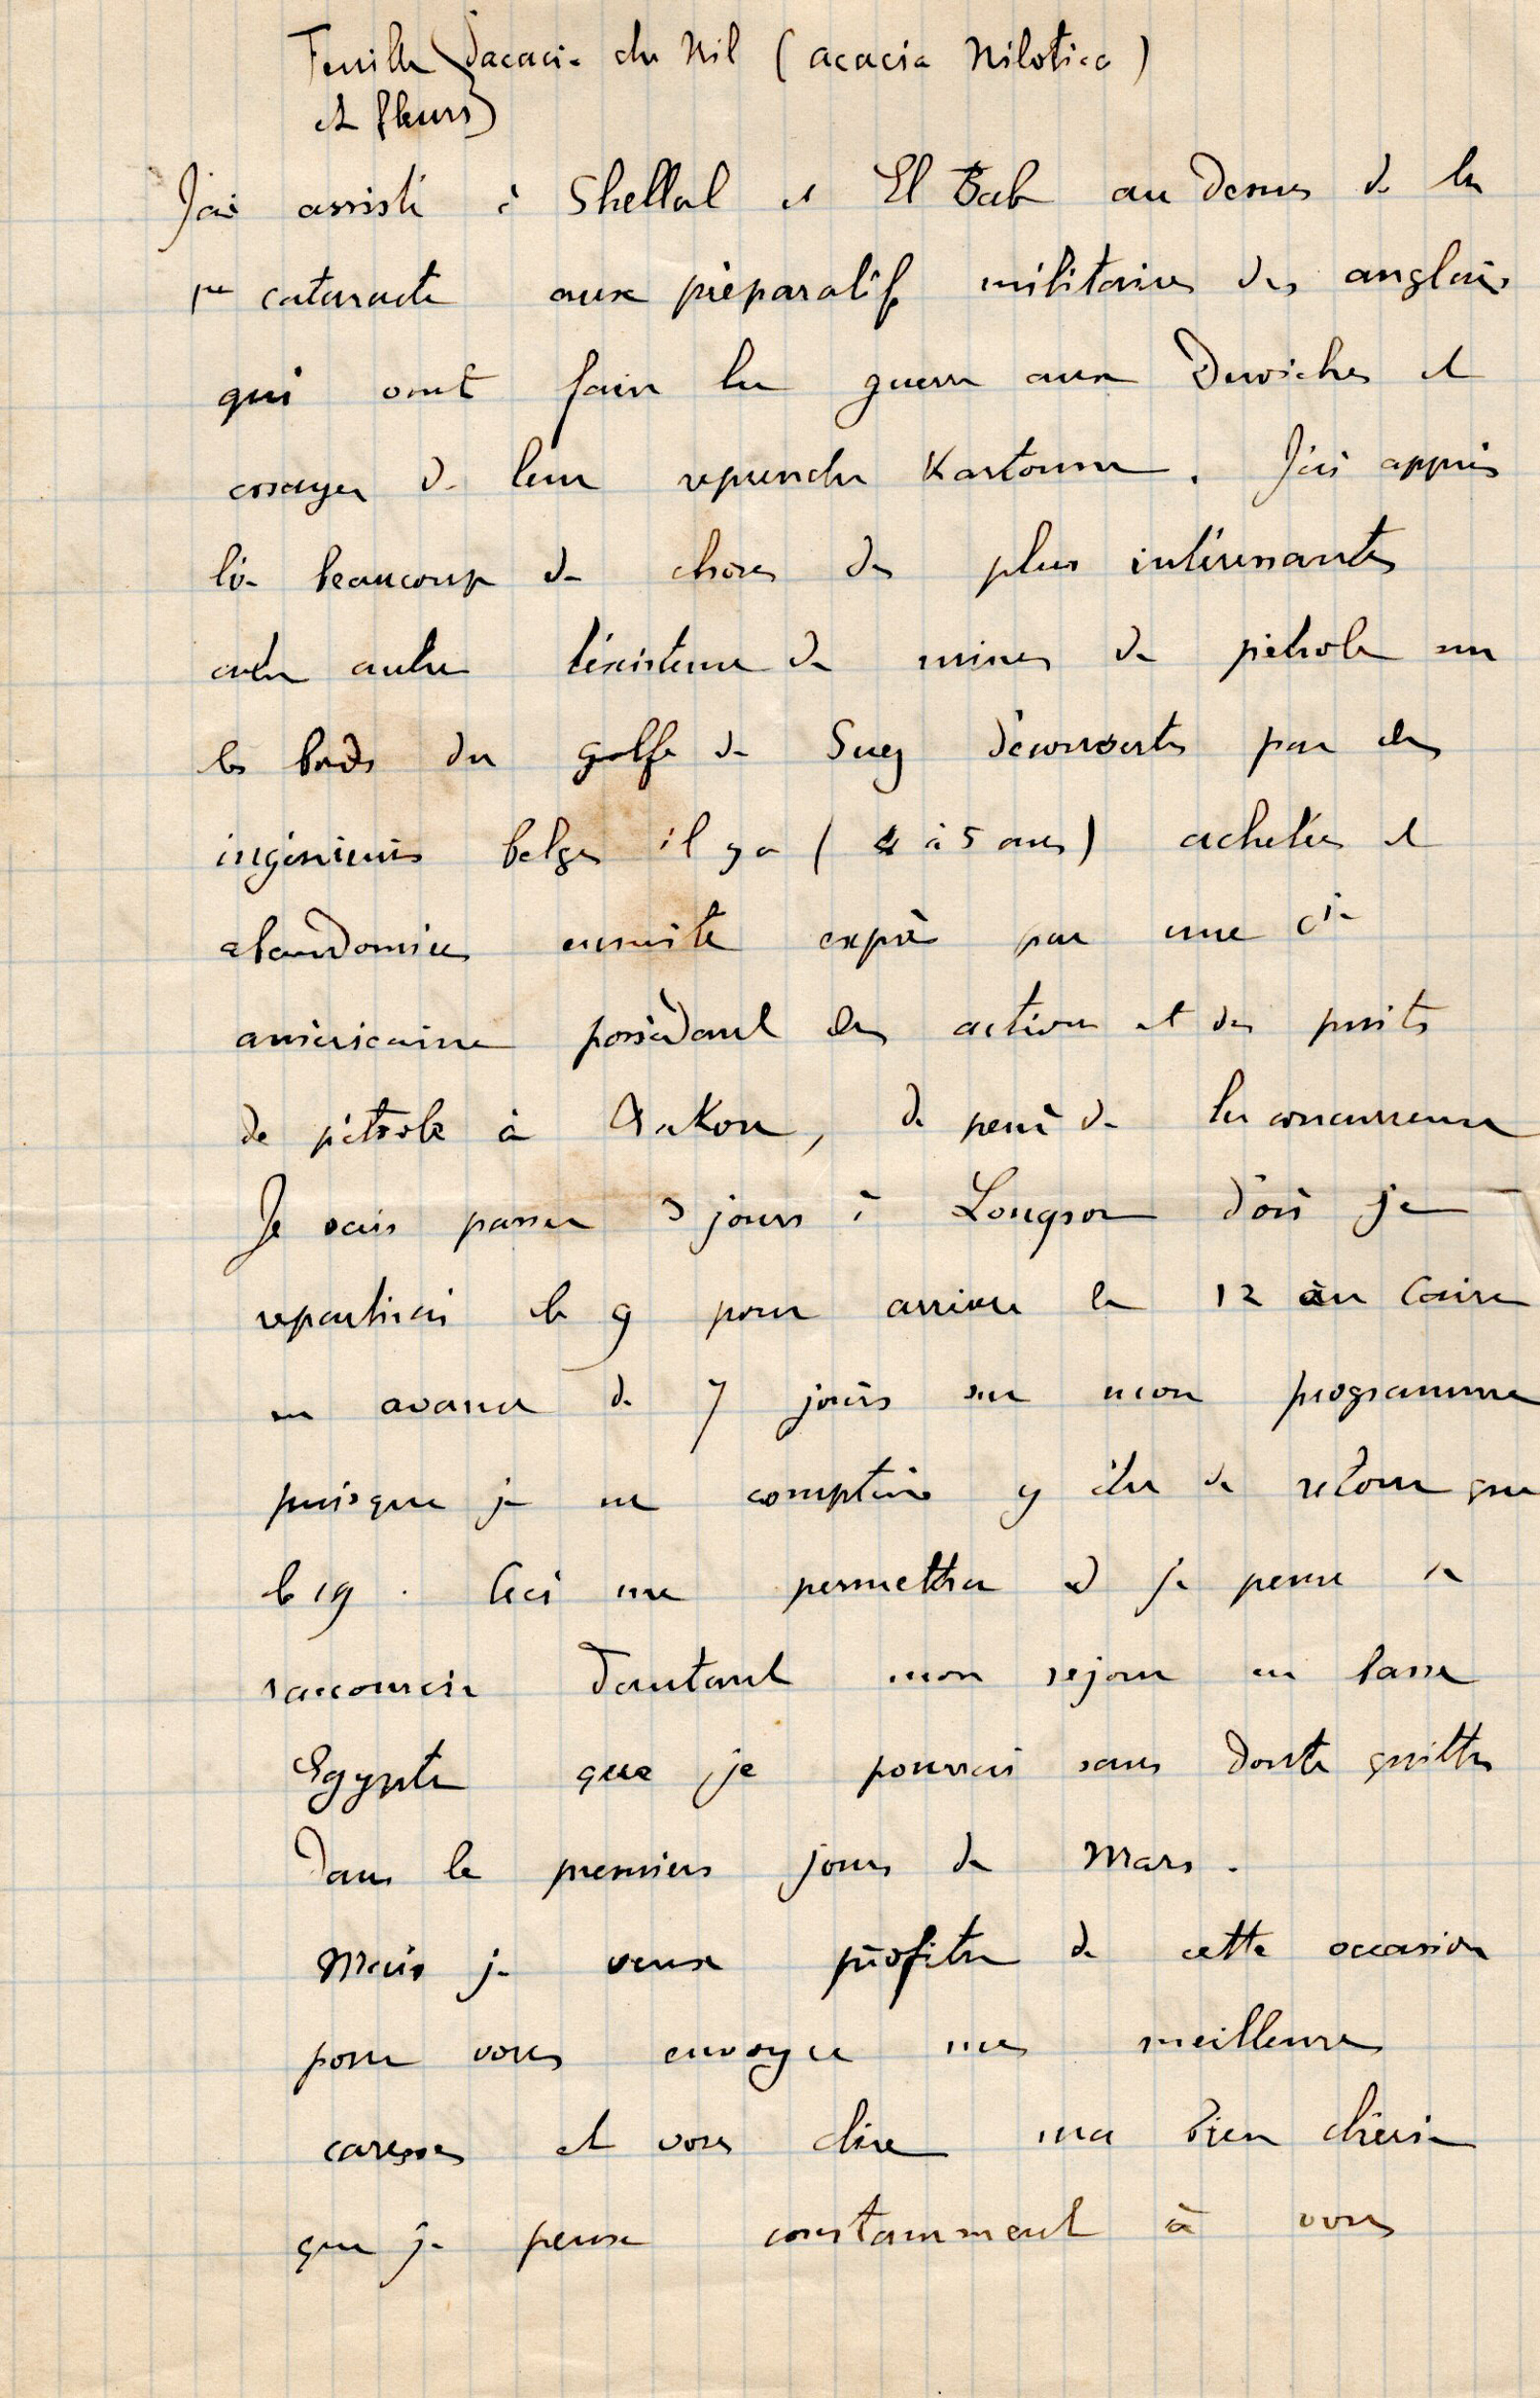 Feuille d'acacia du Nil (acacia Nilotica)
et fleurs
J'ai assisté à Shellal et El Bab au dessus de la
1re cataracte aux préparatifs militaires des anglais
qui vont faire la guerre aux Derviches et
essayer de leur reprendre Kartoum. J'ai appris
là beaucoup de choses des plus intéressantes
entre autre l'existence de mines de pétrole sur
les bords du golfe de Suez découvertes par des
ingénieurs belges il y a (4 à 5 ans) achetées et
abandonnées ensuite exprès par une Cie
américaine possédant des actions et des puits
de pétrole à, de peur de la concurrence
Je vais passer 3 jours à Louqsor d'où je
repartirai le 9 pour arriver le 12 au Caire
en avance de 7 jours sur mon programme
puisque je ne comptais y être de retour que
le 19. Ceci me permettra je pense de
raccourcir d'autant mon séjour en basse
Egypte que je pourrai sans doute quitter
dans les premiers jours de Mars.
Mais je veux profiter de cette occasion
pour vous envoyer mes meilleures
caresses et vous dire ma bien chérie
que je pense constamment à vous